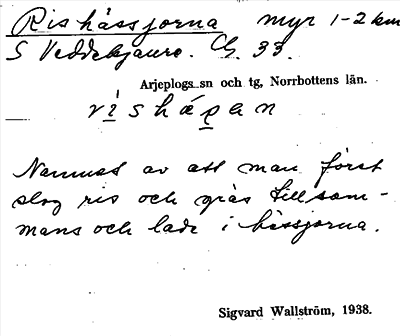 Rishässjorna myr 1-2 km
S Veddekjaure. G. 33.
Arjeplogs sn och tg, Norrbottens län.
Namnet av att man först
slog ris och gräs tillsam-
mans och lade i hässjorna.
Sigvard Wallström, 1938.